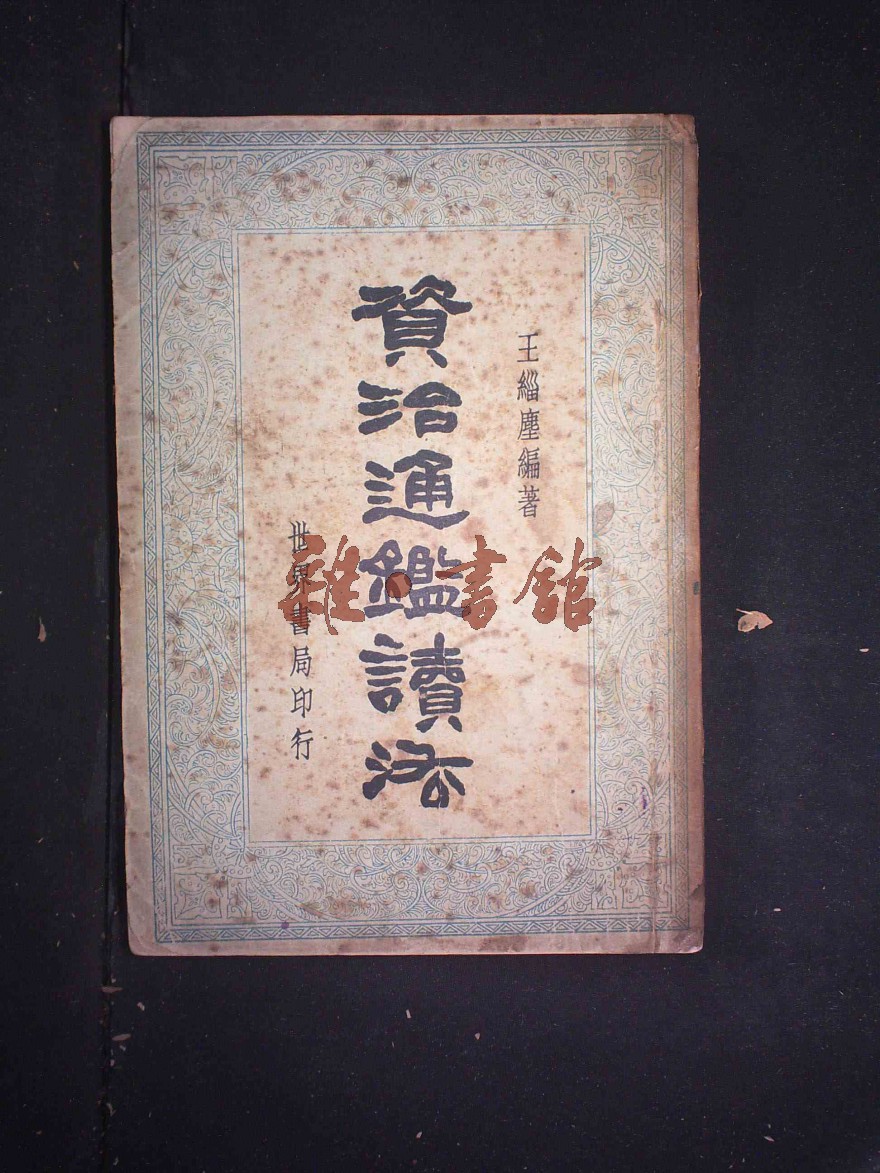 王緇塵編著
資治通鑑讀法
世界書局印行
雜·書館